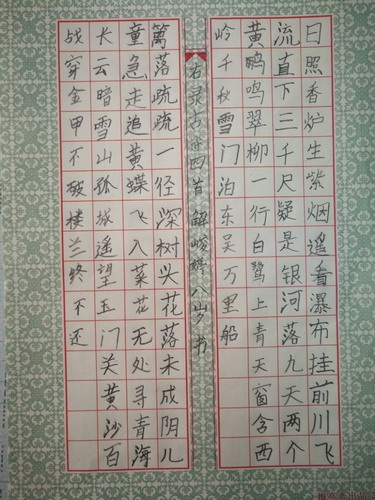 日照香炉生紫烟遥看瀑布挂前川飞
流直下三千尺疑是银河落九天两个
黄鹂鸣翠柳一行白鹭上青天窗含西
岭千秋雪门泊东吴万里船
右录古诗四首 解峻婷八岁书
篱落疏疏一径深树头花落未成阴儿
童急走追黄蝶飞入菜花无处寻青海
长云暗雪山孤城遥望玉门关黄沙百
战穿金甲不破楼兰终不还